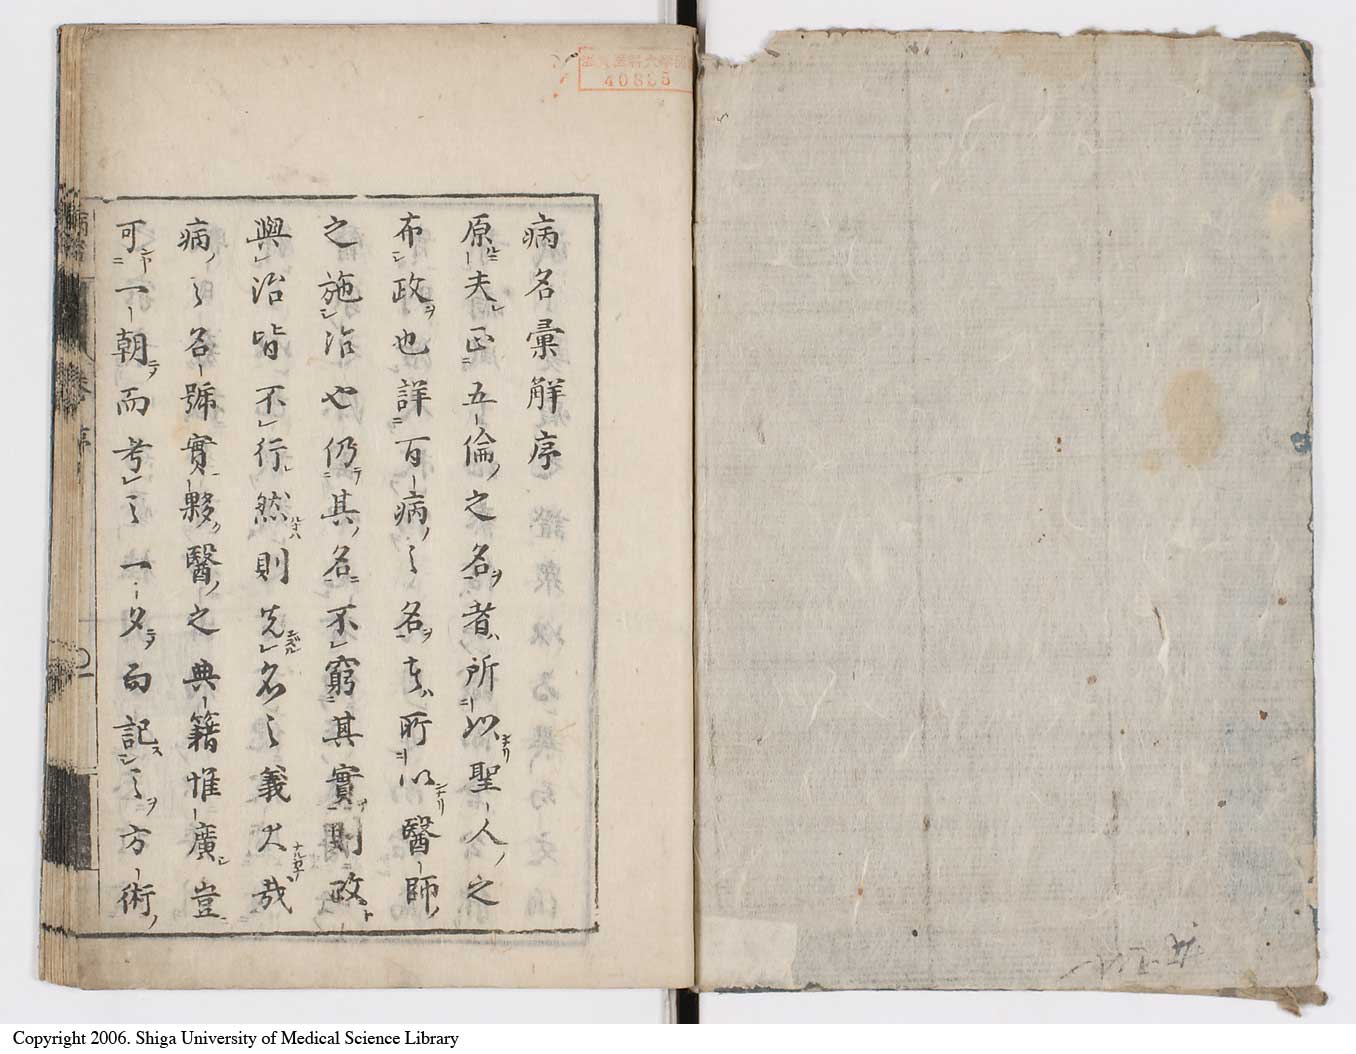 病名彙解序
原夫正五倫之名者所以聖人之
布政也詳百病之名者所以醫師
之施治也仍其名不窮其實則政
與治皆不行然則先名之義大哉
病之名號實夥醫之典籍惟廣豈
可一朝而考之一夕而記之方術
卷 序
40885
Copyright 2006. Shiga University of Medical Science Library